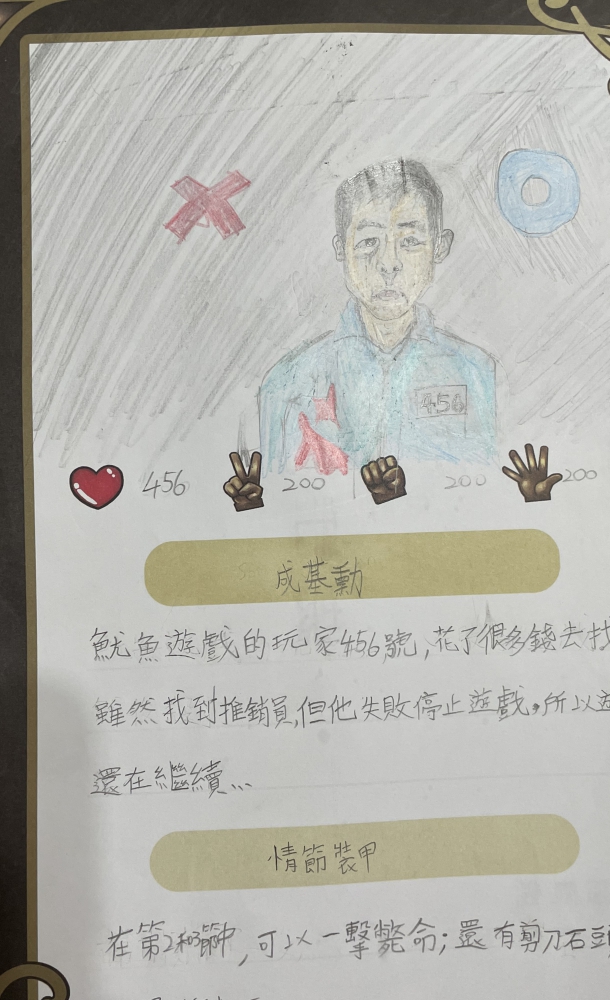 456
456
200
200
200
成基勳
魷魚遊戲的玩家456號，花了很多錢去找
雖然找到推銷員，但他失敗停止遊戲，所以遊
還在繼續...
情節裝甲
在第2和3節中，可以一擊斃命；還有剪刀石頭